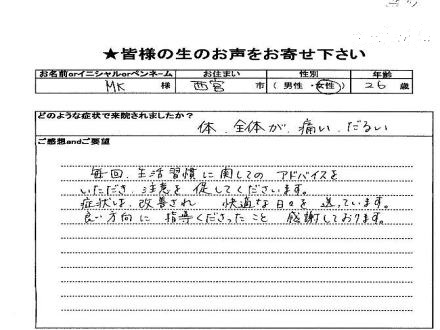 ★皆様の生のお声をお寄せ下さい
お名前orイニシャルorペンネーム お住まい 性別 年齢
MK 様 西宮 市 (男性・女性) 26 歳
どのような症状で来院されましたか?
体、全体が、痛い、だるい
ご感想andご要望
毎回、生活習慣に関してのアドバイスを
いただき、注意を促してくださいます。
症状は、改善され 快適な日々を送っています。
良い方向に 指導くださったこと 感謝しております。